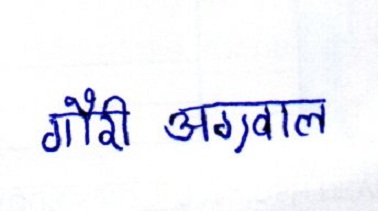 गौरी अग्रवाल